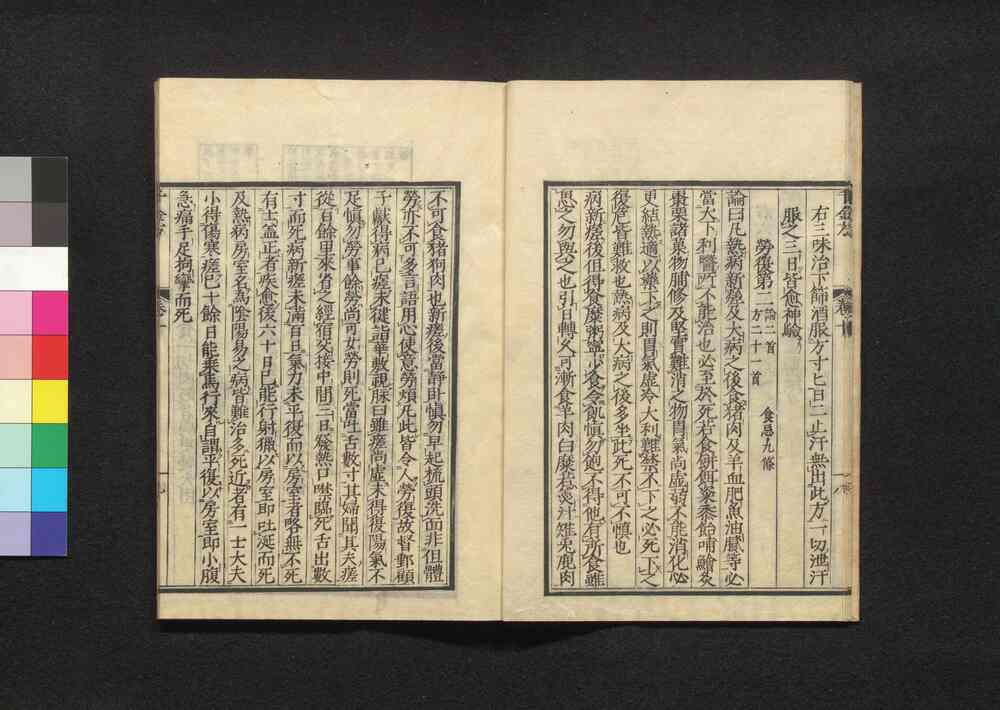 右三味治下篩酒服方寸匕日二止汗無出此方一切泄汗
服之三日皆愈神驗
勞復第二論二首 方二十一首 食忌九條
論曰凡熱病新瘥及大病之後食猪肉及羊血肥魚油膩等必
當大下利醫所不能治也必至於死若食餅餌粢黍飴哺鱠炙
棗栗諸菓物脯脩及堅實難消之物胃氣尚虛弱不能消化必
更結熱適以藥下之則胃氣虛冷大利難禁不下之必死下之
復危皆難救也熱病及大病之後多坐此死不可不慎也
病新瘥後但得食糜粥寧少食令飢慎勿飽不得他有所食雖
思之勿與之也引日轉久可漸食羊肉白糜若羹汁雉兎鹿肉
不可食猪狗肉也新瘥後當靜卧慎勿早起梳頭洗面非但體
勞亦不可多言語用心使意勞煩凡此皆令人勞復故督郵顧
子獻得病已瘥未健詣華敷視脉曰雖瘥尚虛未得復陽氣不
足慎勿勞事餘勞尚可女勞則死當吐舌數寸其婦聞其夫瘥
從百餘里來省之經宿交接中間三日發熱口噤臨死舌出數
寸而死病新瘥未滿百日氣力未平復而以房室者略無不死
有士蓋正者疾愈後六十日已能行射獵以房室即吐涎而死
及熱病房室名為陰陽易之病皆難治多死近者有一士大夫
小得傷寒瘥已十餘日能乘馬行來自謂平復以房室即小腹
急痛手足拘攣而死